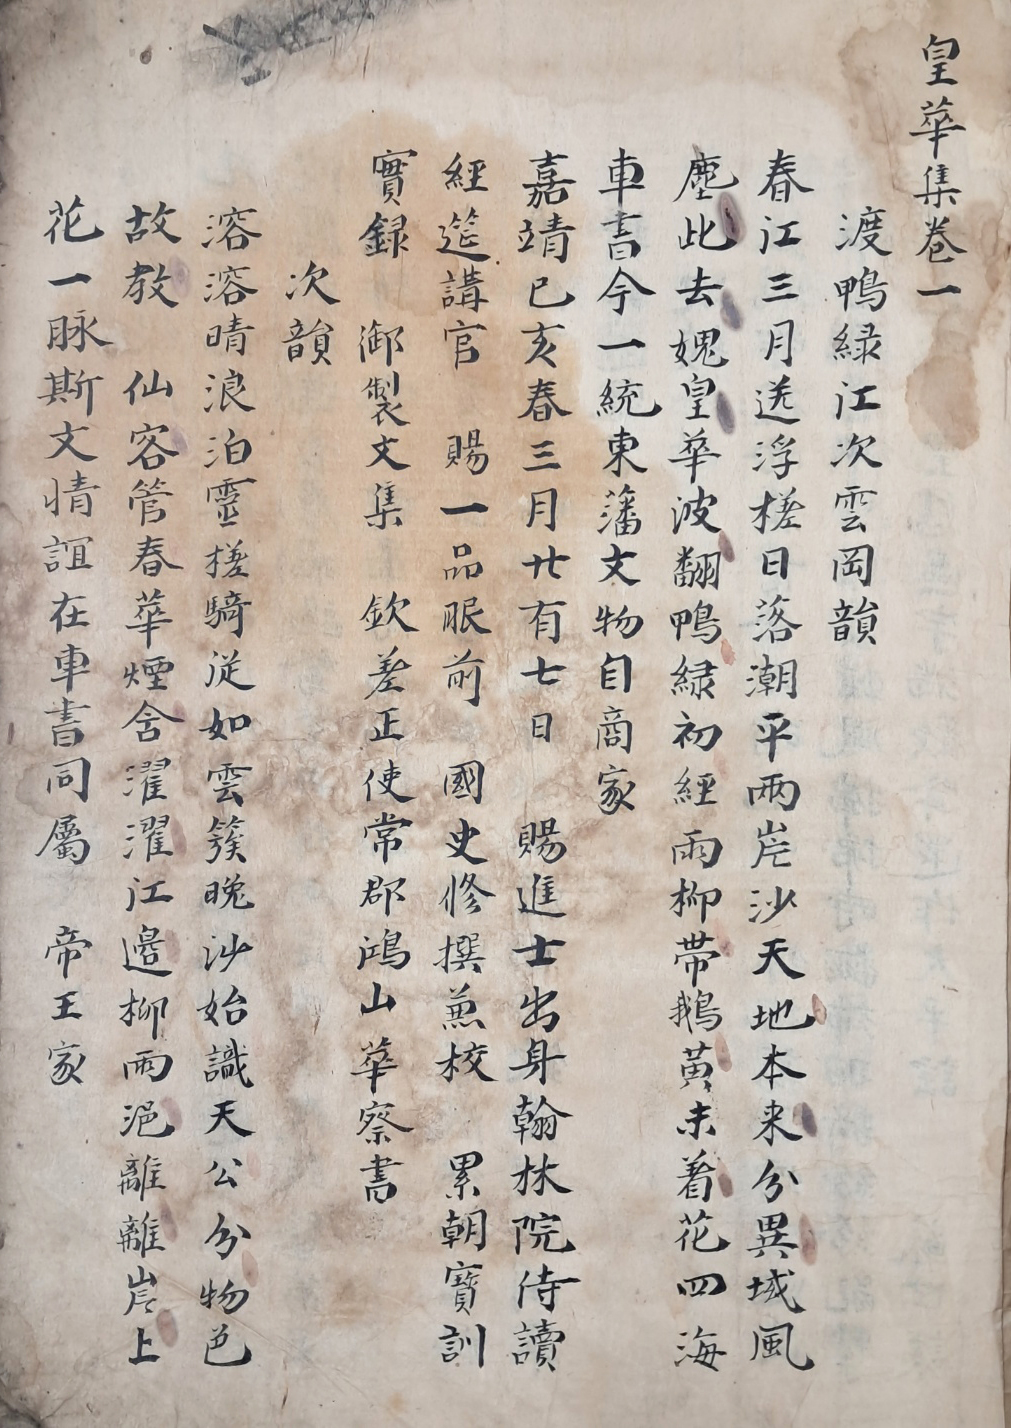 皇華集卷一
渡鴨緑江次雲岡韻
春江三月送浮槎日落潮平两岸沙天地本来分異域風
塵此去媿皇華波翻鴨緑初經雨柳帯鵝黄未着花四海
車書今一統東藩文物自商家
嘉靖己亥春三月廿有七日 賜進士出身翰林院侍讀
經筵講官 賜一品服前 國史修撰兼校 累朝寶訓
實録 御製文集 欽差正使常郡鴻山華察書
次韻
溶溶晴浪泊靈槎騎従如雲簇晚沙始識天公分物色
故教 仙客管春華煙含濯濯江邊柳雨浥離離岸上
花一脉斯文情誼在車書同屬 帝王家